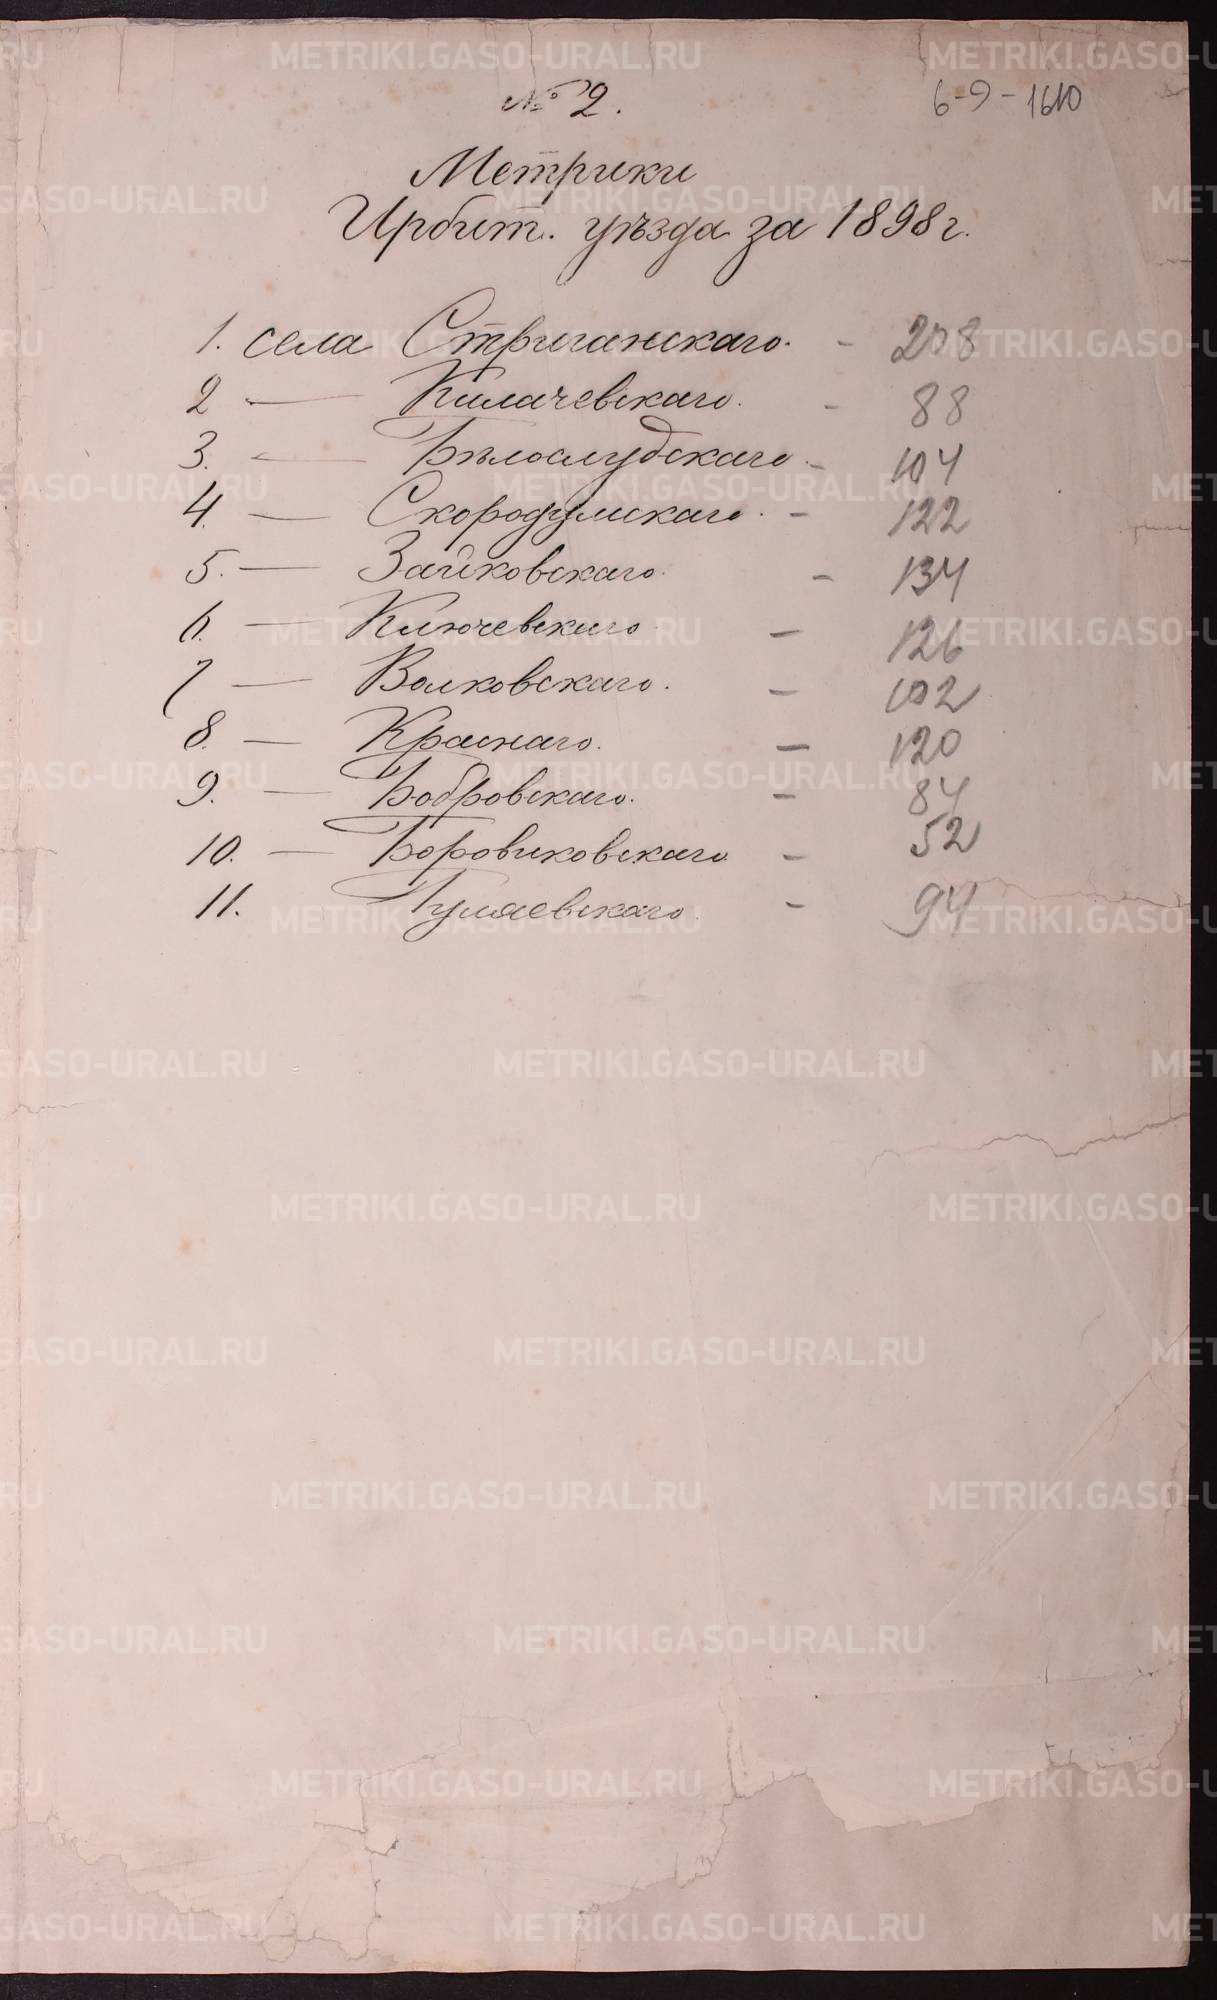 № 2.
6-9-1610
Метрики
Ирбит. уѣзда за 1898 г.
1. села Стриганскаго. - 208
2 — Килачевскаго. - 88
3. — Бѣлослудскаго - 104
4. — Скородумскаго. - 122
5. — Зайковскаго. - 134
6. — Ключевскаго - 126
7 — Волковскаго. - 102
8. — Краснаго. - 120
9. — Бобровскаго. - 84
10. — Боровиковскаго - 52
11. Гуляевскаго. - 94
METRIKI.GASO-URAL.RU